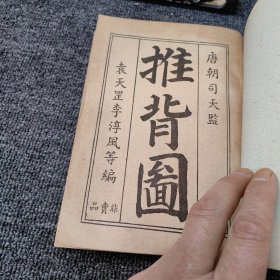 唐朝司天監
推背圖
袁天罡李淳風等編
非賣品